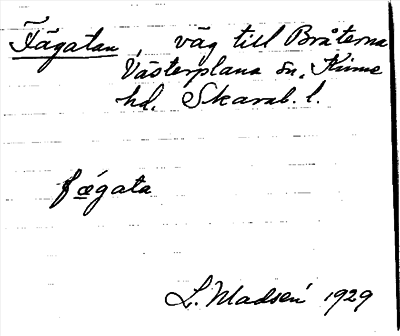 Fägatan, väg till Bråterna
Västerplana sn, Kinne
hd. Skarab. l.
fǽgata
L. Madsén 1929